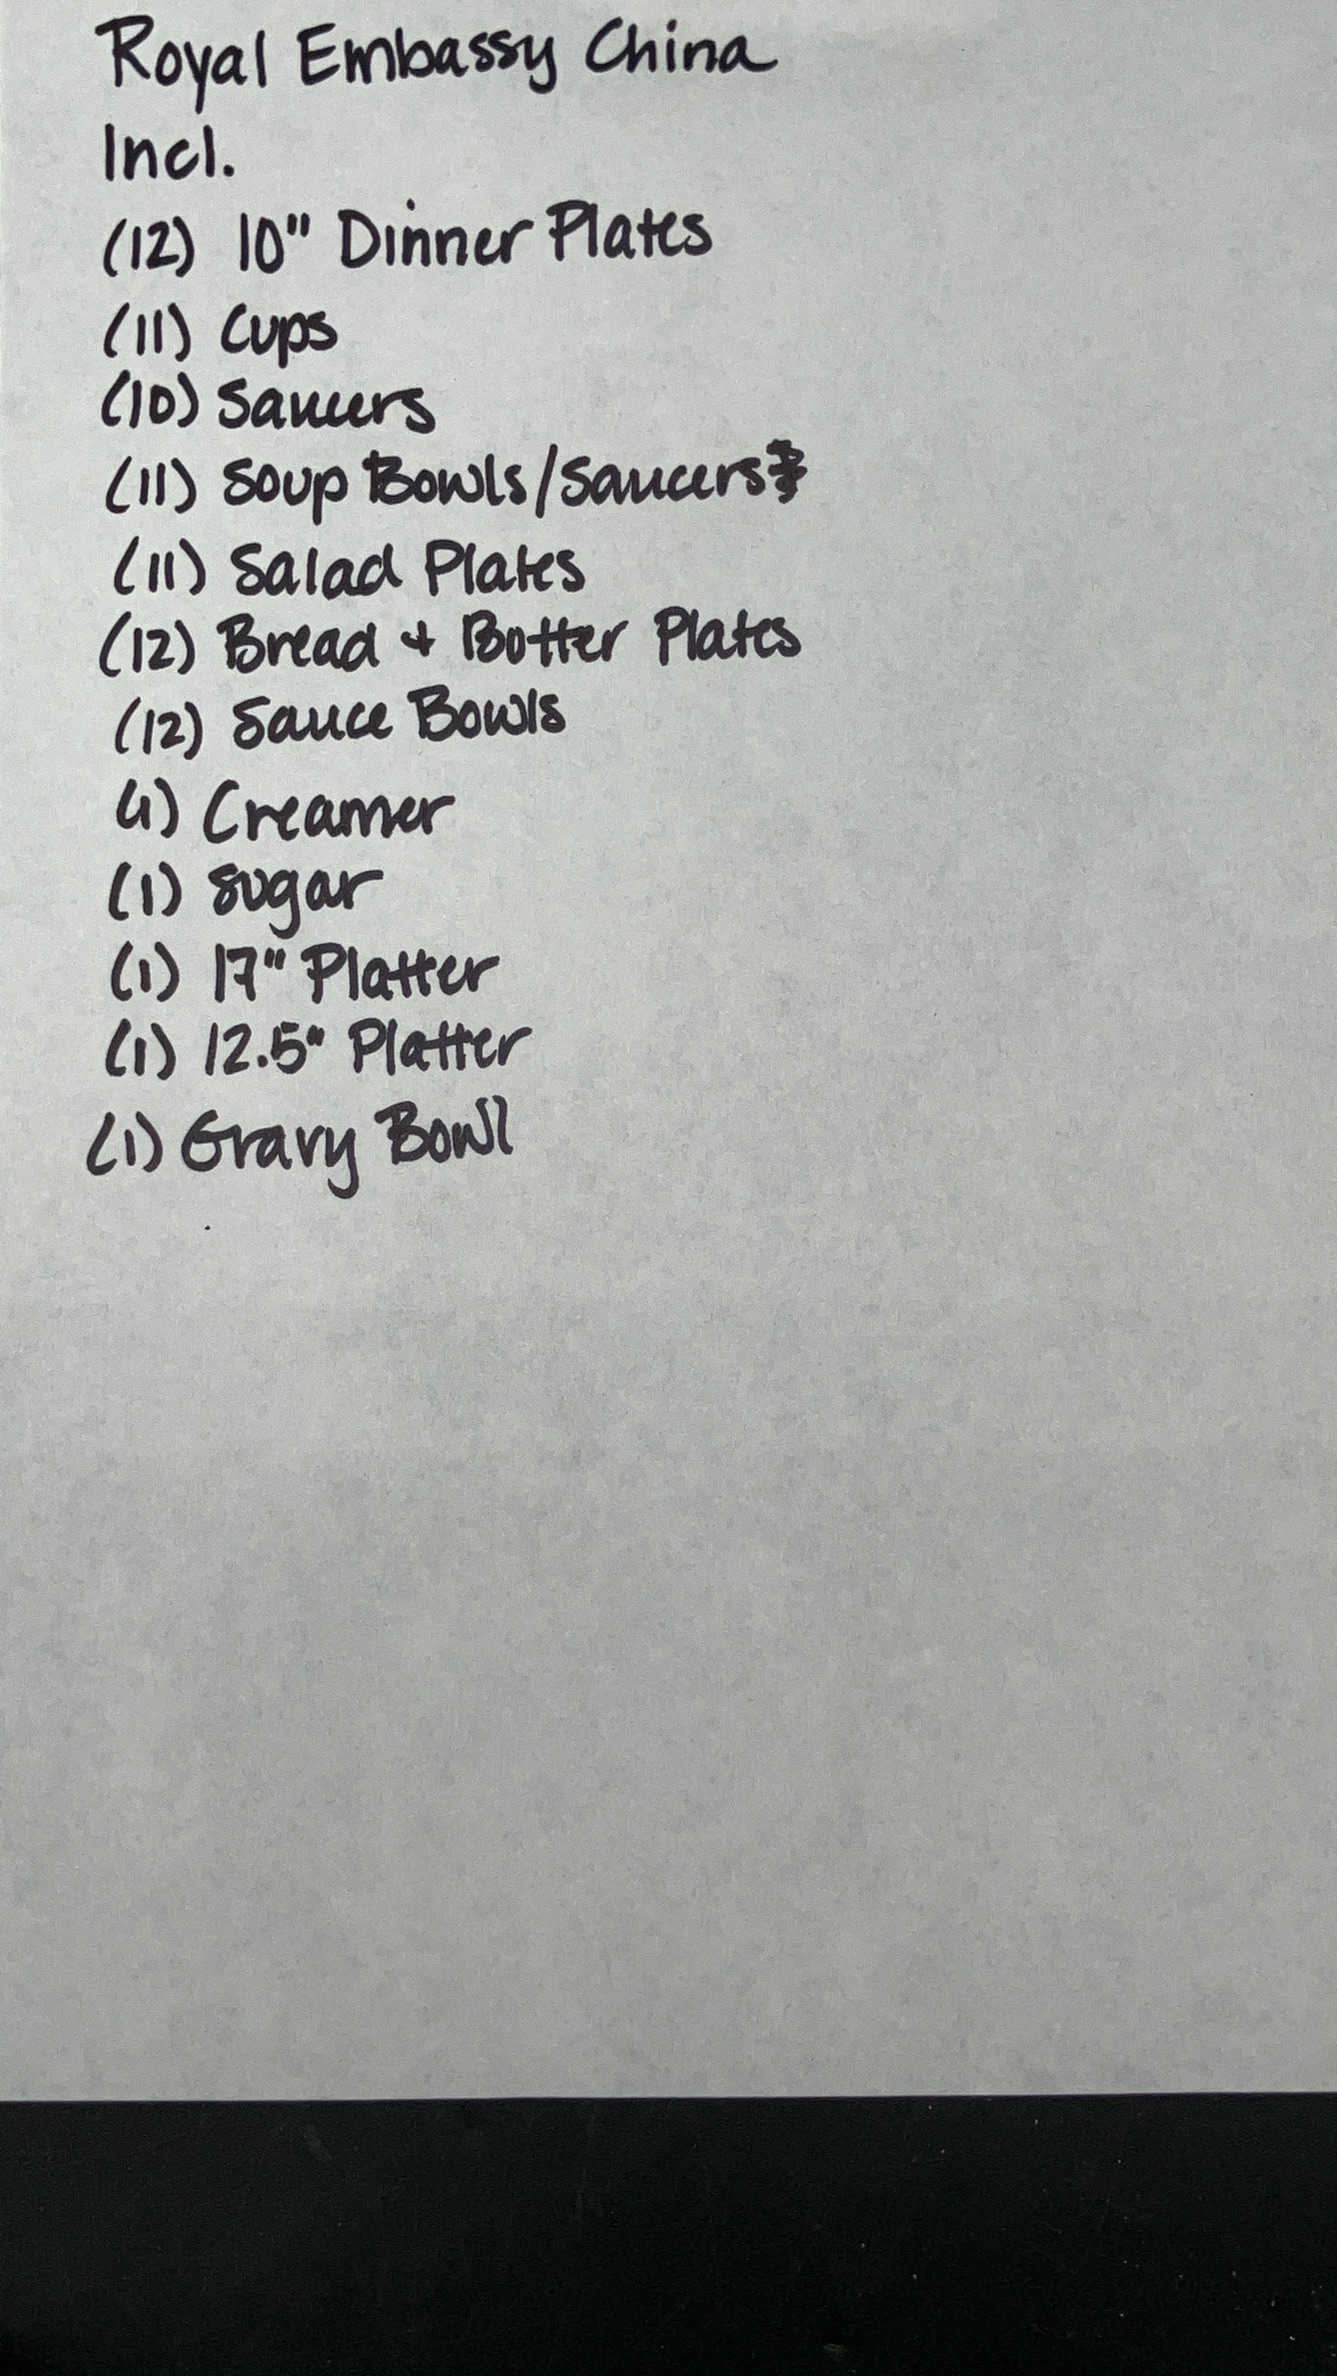 Royal Embassy China
Incl.
(12) 10" Dinner Plates
(11) Cups
(10) Saucers
(11) Soup Bowls/Saucers
(11) Salad Plates
(12) Bread + Butter Plates
(12) Sauce Bowls
(1) Creamer
(1) Sugar
(1) 17" Platter
(1) 12.5" Platter
(1) Gravy Bowl